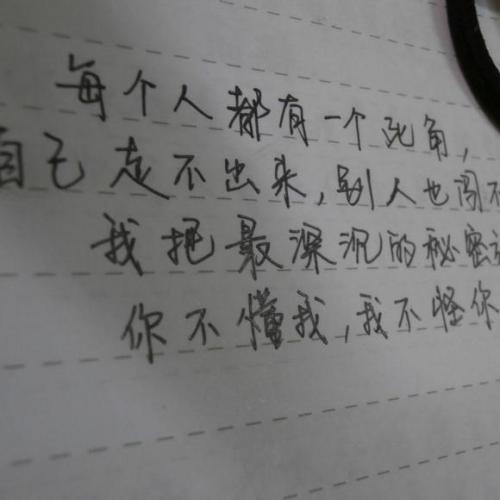 每个人都有一个死角，
自己走不出来，别人也闯不
我把最深沉的秘密
你不懂我，我不怪你